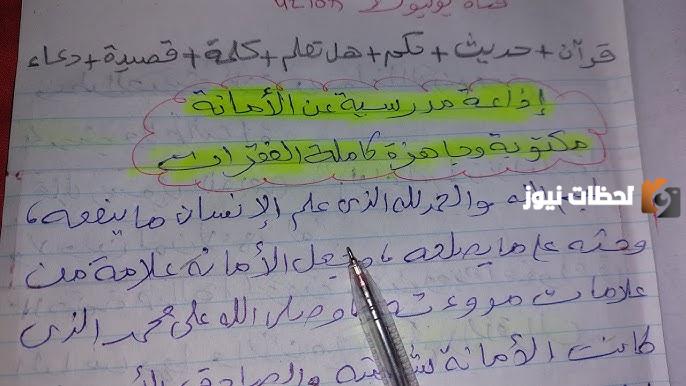 قناة يوتيوب
قرآن + حديث + حكم + هل تعلم + كلمة + قصيدة + دعاء
إذاعة مدرسية عن الأمانة
مكتوبة وجاهزة كاملة الفقرات
لحظات نيوز
والحمد لله الذى علم الإنسان ما ينفعه ،
وحثه على ما يصلحه ، وجعل الأمانة علامة من
علامات مروءته وصلى الله على محمد الذى
كانت الأمانة والصادق